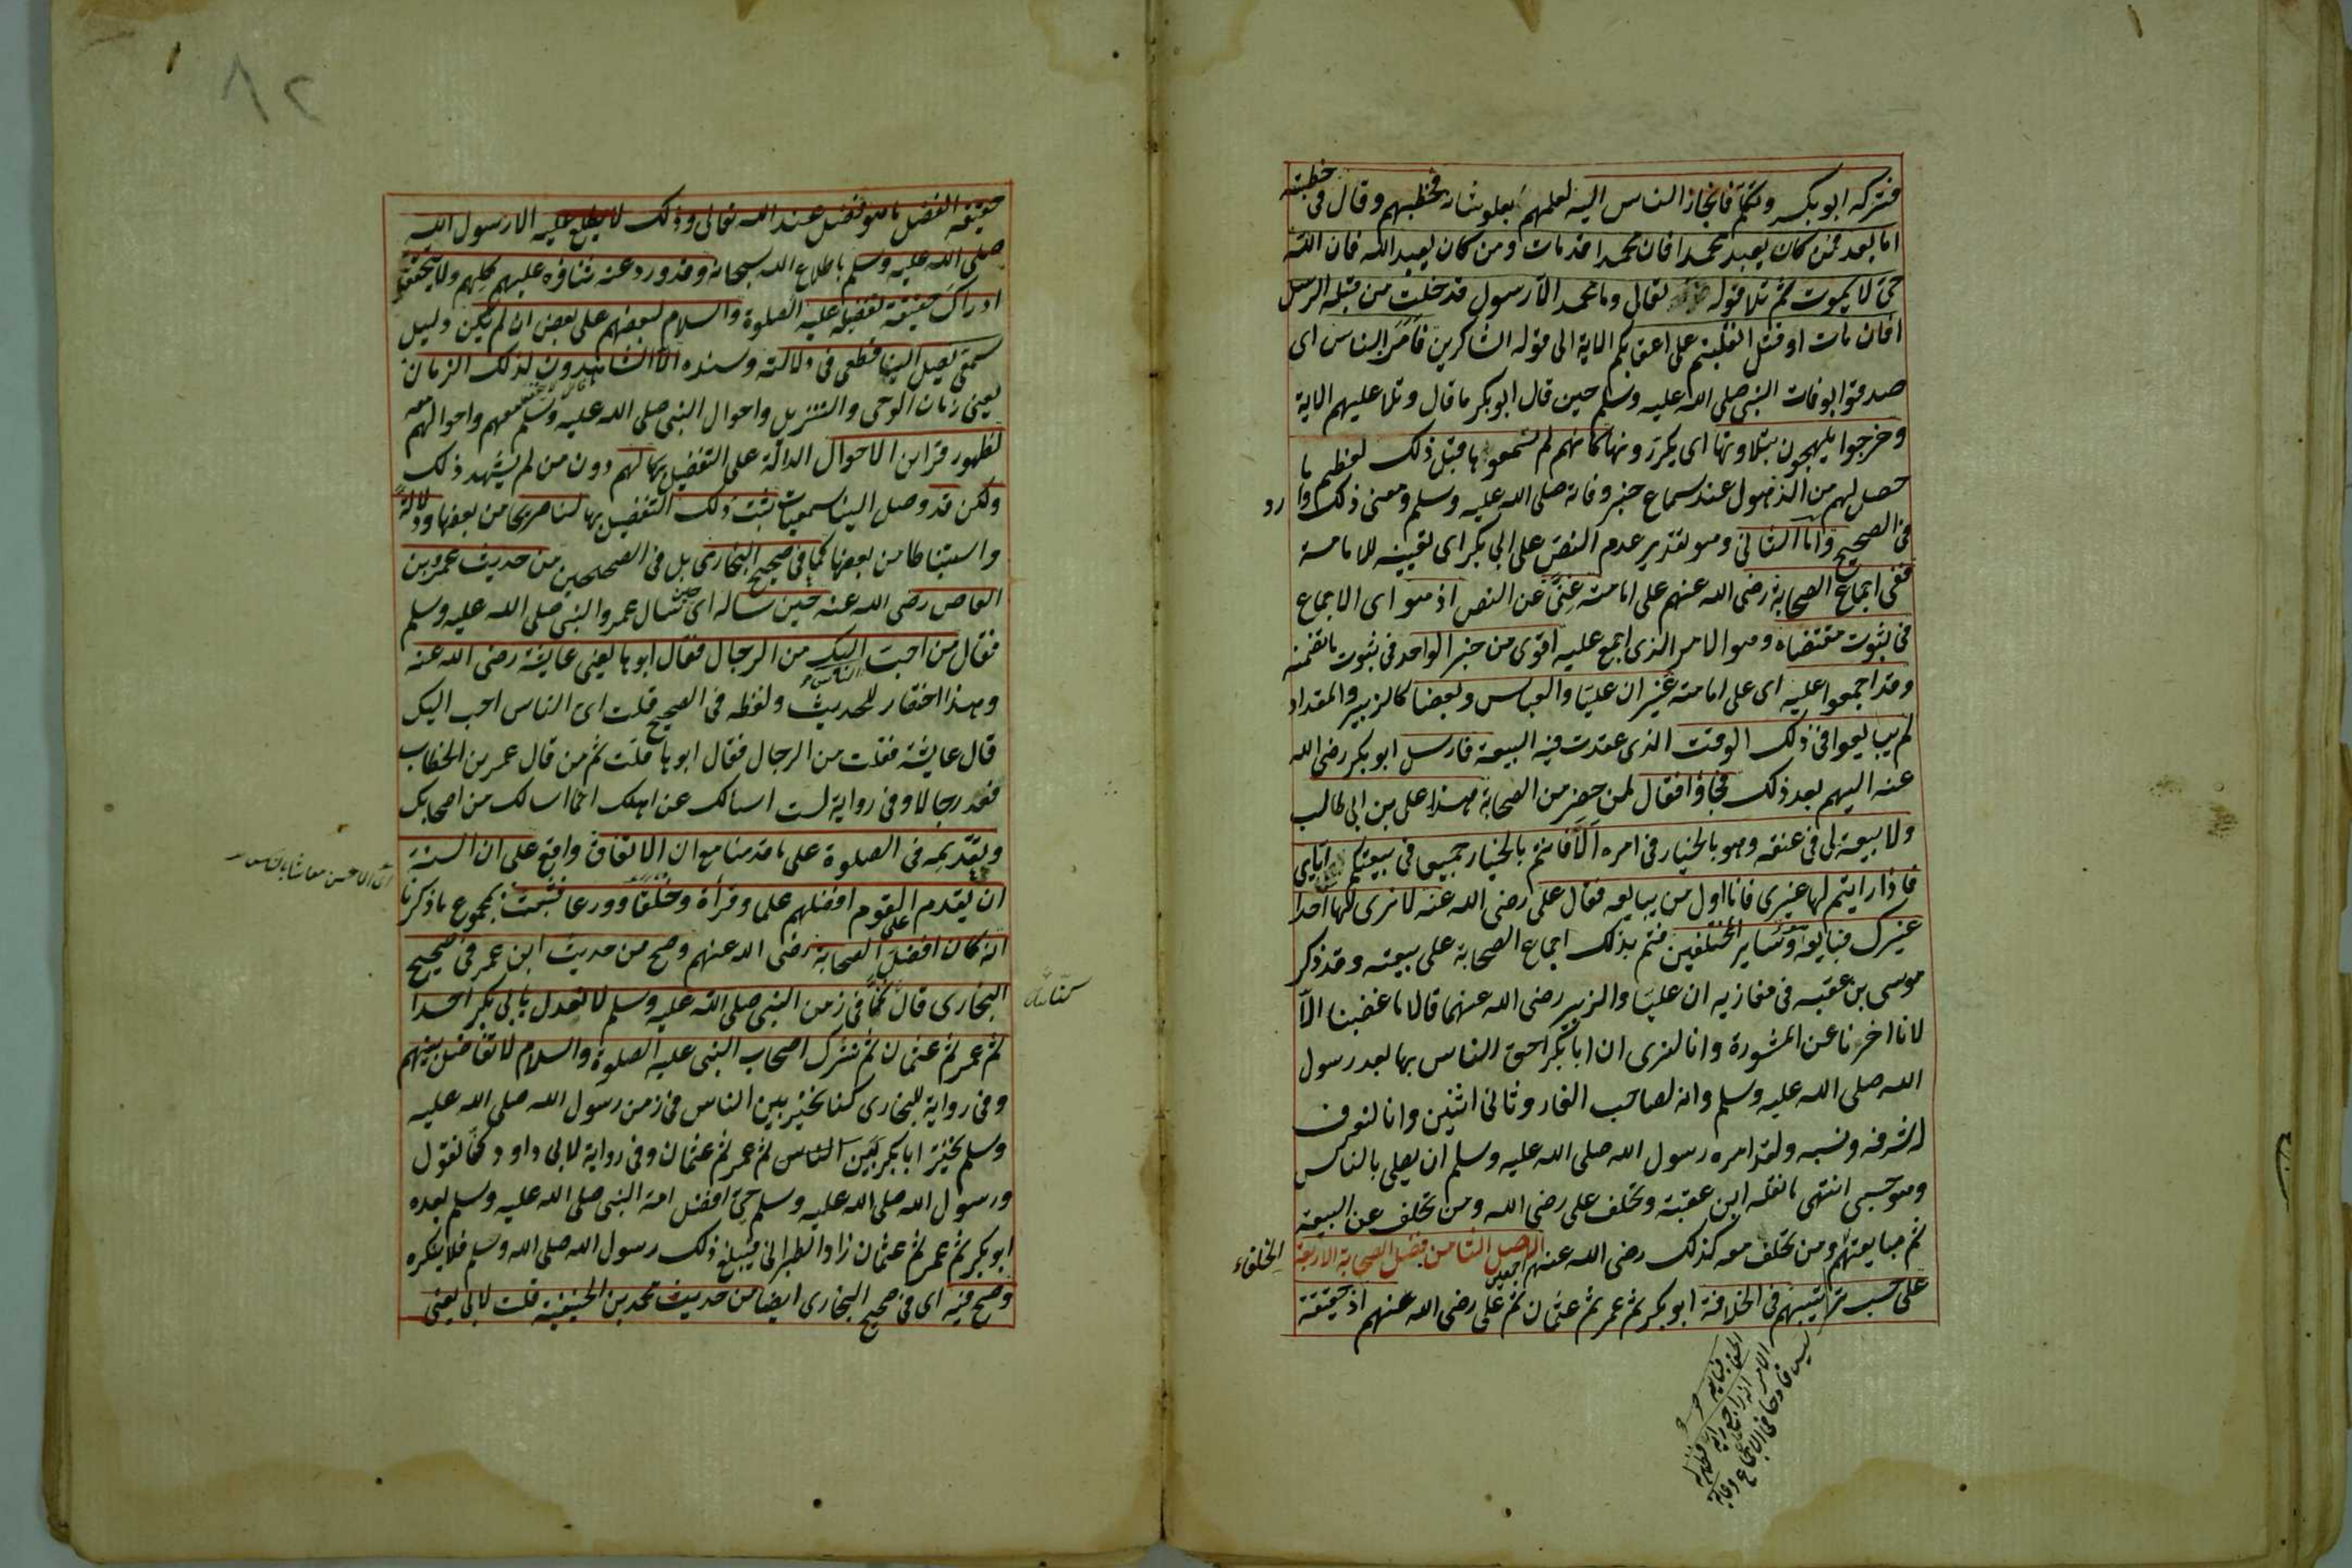 فتركه ابو بكر وتكلم فانحاز الناس اليه لعلمهم بعلو شانه فخطبهم وقال في خطبته
اما بعد فمن كان يعبد محمدا فان محمدا قد مات ومن كان يعبد الله فان الله
حي لا يموت ثم تلا قوله تعالى وما محمد الا رسول قد خلت من قبله الرسل
افان مات او قتل انقلبتم على اعقابكم الاية الى قوله الشاكرين فامن الناس اى
صدقوا بوفات النبي صلى الله عليه وسلم حين قال ابو بكر ما قال وتلا عليهم الاية
وخرجوا يلهجون بتلاوتها اى يكررونها كانهم لم يسمعوا بها قبل ذلك لعظيم ما
حصل لهم من الذهول عند سماع خبر وفاته صلى الله عليه وسلم ومعنى ذلك وارد
في الصحيح واما الثاني وهو تقدير عدم النص على ابي بكر اى تعيينه للامامة
ففى اجماع الصحابة رضى الله عنهم على امامته غنى عن النص اذ هو اى الاجماع
فى ثبوت مقتضاه وهو الامر الذى اجمع عليه اقوى من خبر الواحد فى ثبوت ما تضمنه
وقد اجمعوا عليه اى على امامته غير ان عليا والعباس وبعضا كالزبير والمقداد
لم يبايعوا فى ذلك الوقت الذى عقدت فيه البيعة فارسل ابو بكر رضى الله
عنه اليهم بعد ذلك فجاؤا فقال لمن حضر من الصحابة هذا على بن ابى طالب
ولا بيعة لى فى عنقه وهو بالخيار فى امره الا فانتم بالخيار جميعا فى بيعتكم اياى
فاذا رايتم لها غيرى فانا اول من يبايعه فقال على رضى الله عنه لا نرى لها احدا
غيرك فبايعه هو وساير المختلفين فتم بذلك اجماع الصحابة على بيعته وقد ذكر
موسى بن عقبه فى مغازيه ان عليا والزبير رضى الله عنهما قالا ما غضبنا الا
لانا اخرنا عن المشورة وانا لنرى ان ابا بكر احق الناس بها بعد رسول
الله صلى الله عليه وسلم وانه لصاحب الغار وثانى اثنين وانا لنعرف
له شرفه ونسبه ولقد امره رسول الله صلى الله عليه وسلم ان يصلى بالناس
وهو حى انتهى ما نقله ابن عقبة وتخلف على رضى الله ومن تخلف عن البيعة
ثم مبايعتهم ومن تخلف معه كذلك رضى الله عنهم اجمعين الاصل الثامن فضل الصحابة الاربعة
الخلفاء
على حسب ترتيبهم فى الخلافة ابو بكر ثم عمر ثم عثمان ثم على رضى الله عنهم اذ حقيقة
٨٢
حقيقة الفضل ما هو فضل عند الله تعالى وذلك لا يطلع عليه الا رسول الله
صلى الله عليه وسلم باطلاع الله سبحانه وقد ورد عنه ثناؤه عليهم كلهم ولا يتحقق
ادراك حقيقة تفضيله عليه الصلوة والسلام لبعضهم على بعض ان لم يكن دليل
سمعى يصل الينا قطعى فى دلالته وسنده الا الشاهدون لذلك الزمان
يعنى زمان الوحى والتنزيل واحوال النبى صلى الله عليه وسلم معهم واحوالهم معه
لظهور قراين الاحوال الدالة على التفضيل بحالهم دون من لم يشهد ذلك
ولكن قد وصل الينا سمعيات ثبت ذلك التفضيل بها لنا صريحا من بعضها ودلالة
واستنباطا من بعضها كما فى صحيح البخارى بل فى الصحيحين من حديث عمرو بن
العاص رضى الله عنه حين ساله اى حين سال عمرو النبى صلى الله عليه وسلم
فقال من احب اليك من الرجال فقال ابوها يعنى عايشة رضى الله عنه
وهذا اختصار للحديث ولفظه فى الصحيح قلت اى الناس احب اليك
قال عايشة فقلت من الرجال فقال ابوها قلت ثم من قال عمر بن الخطاب
فعد رجالا وفى رواية لست اسالك عن اهلك انما اسالك من اصحابك
وتقديمه فى الصلوة على ما قدمنا مع ان الاتفاق واقع على ان السنة
ان يقدم على القوم افضلهم علما وقراة وخلقا وورعا فثبت بمجموع ما ذكرنا
انه كان افضل الصحابة رضى الله عنهم وصح من حديث ابن عمر فى صحيح
البخارى قال كنا فى زمن النبى صلى الله عليه وسلم لا نعدل بابى بكر احدا
ثم عمر ثم عثمان ثم نترك اصحاب النبى عليه الصلوة والسلام لا تفاضل بينهم
وفى رواية للبخارى كنا نخير بين الناس فى زمن رسول الله صلى الله عليه
وسلم نخير ابا بكر بين الناس ثم عمر ثم عثمان وفى رواية لابى داود كنا نقول
ورسول الله صلى الله عليه وسلم حى افضل امة النبى صلى الله عليه وسلم بعده
ابو بكر ثم عمر ثم عثمان زاد الطبرانى فيبلغ ذلك رسول الله صلى الله وسلم فلا ينكره
وصح فيه اى فى صحيح البخارى ايضا من حديث محمد بن الحنفية قلت لابى يعنى